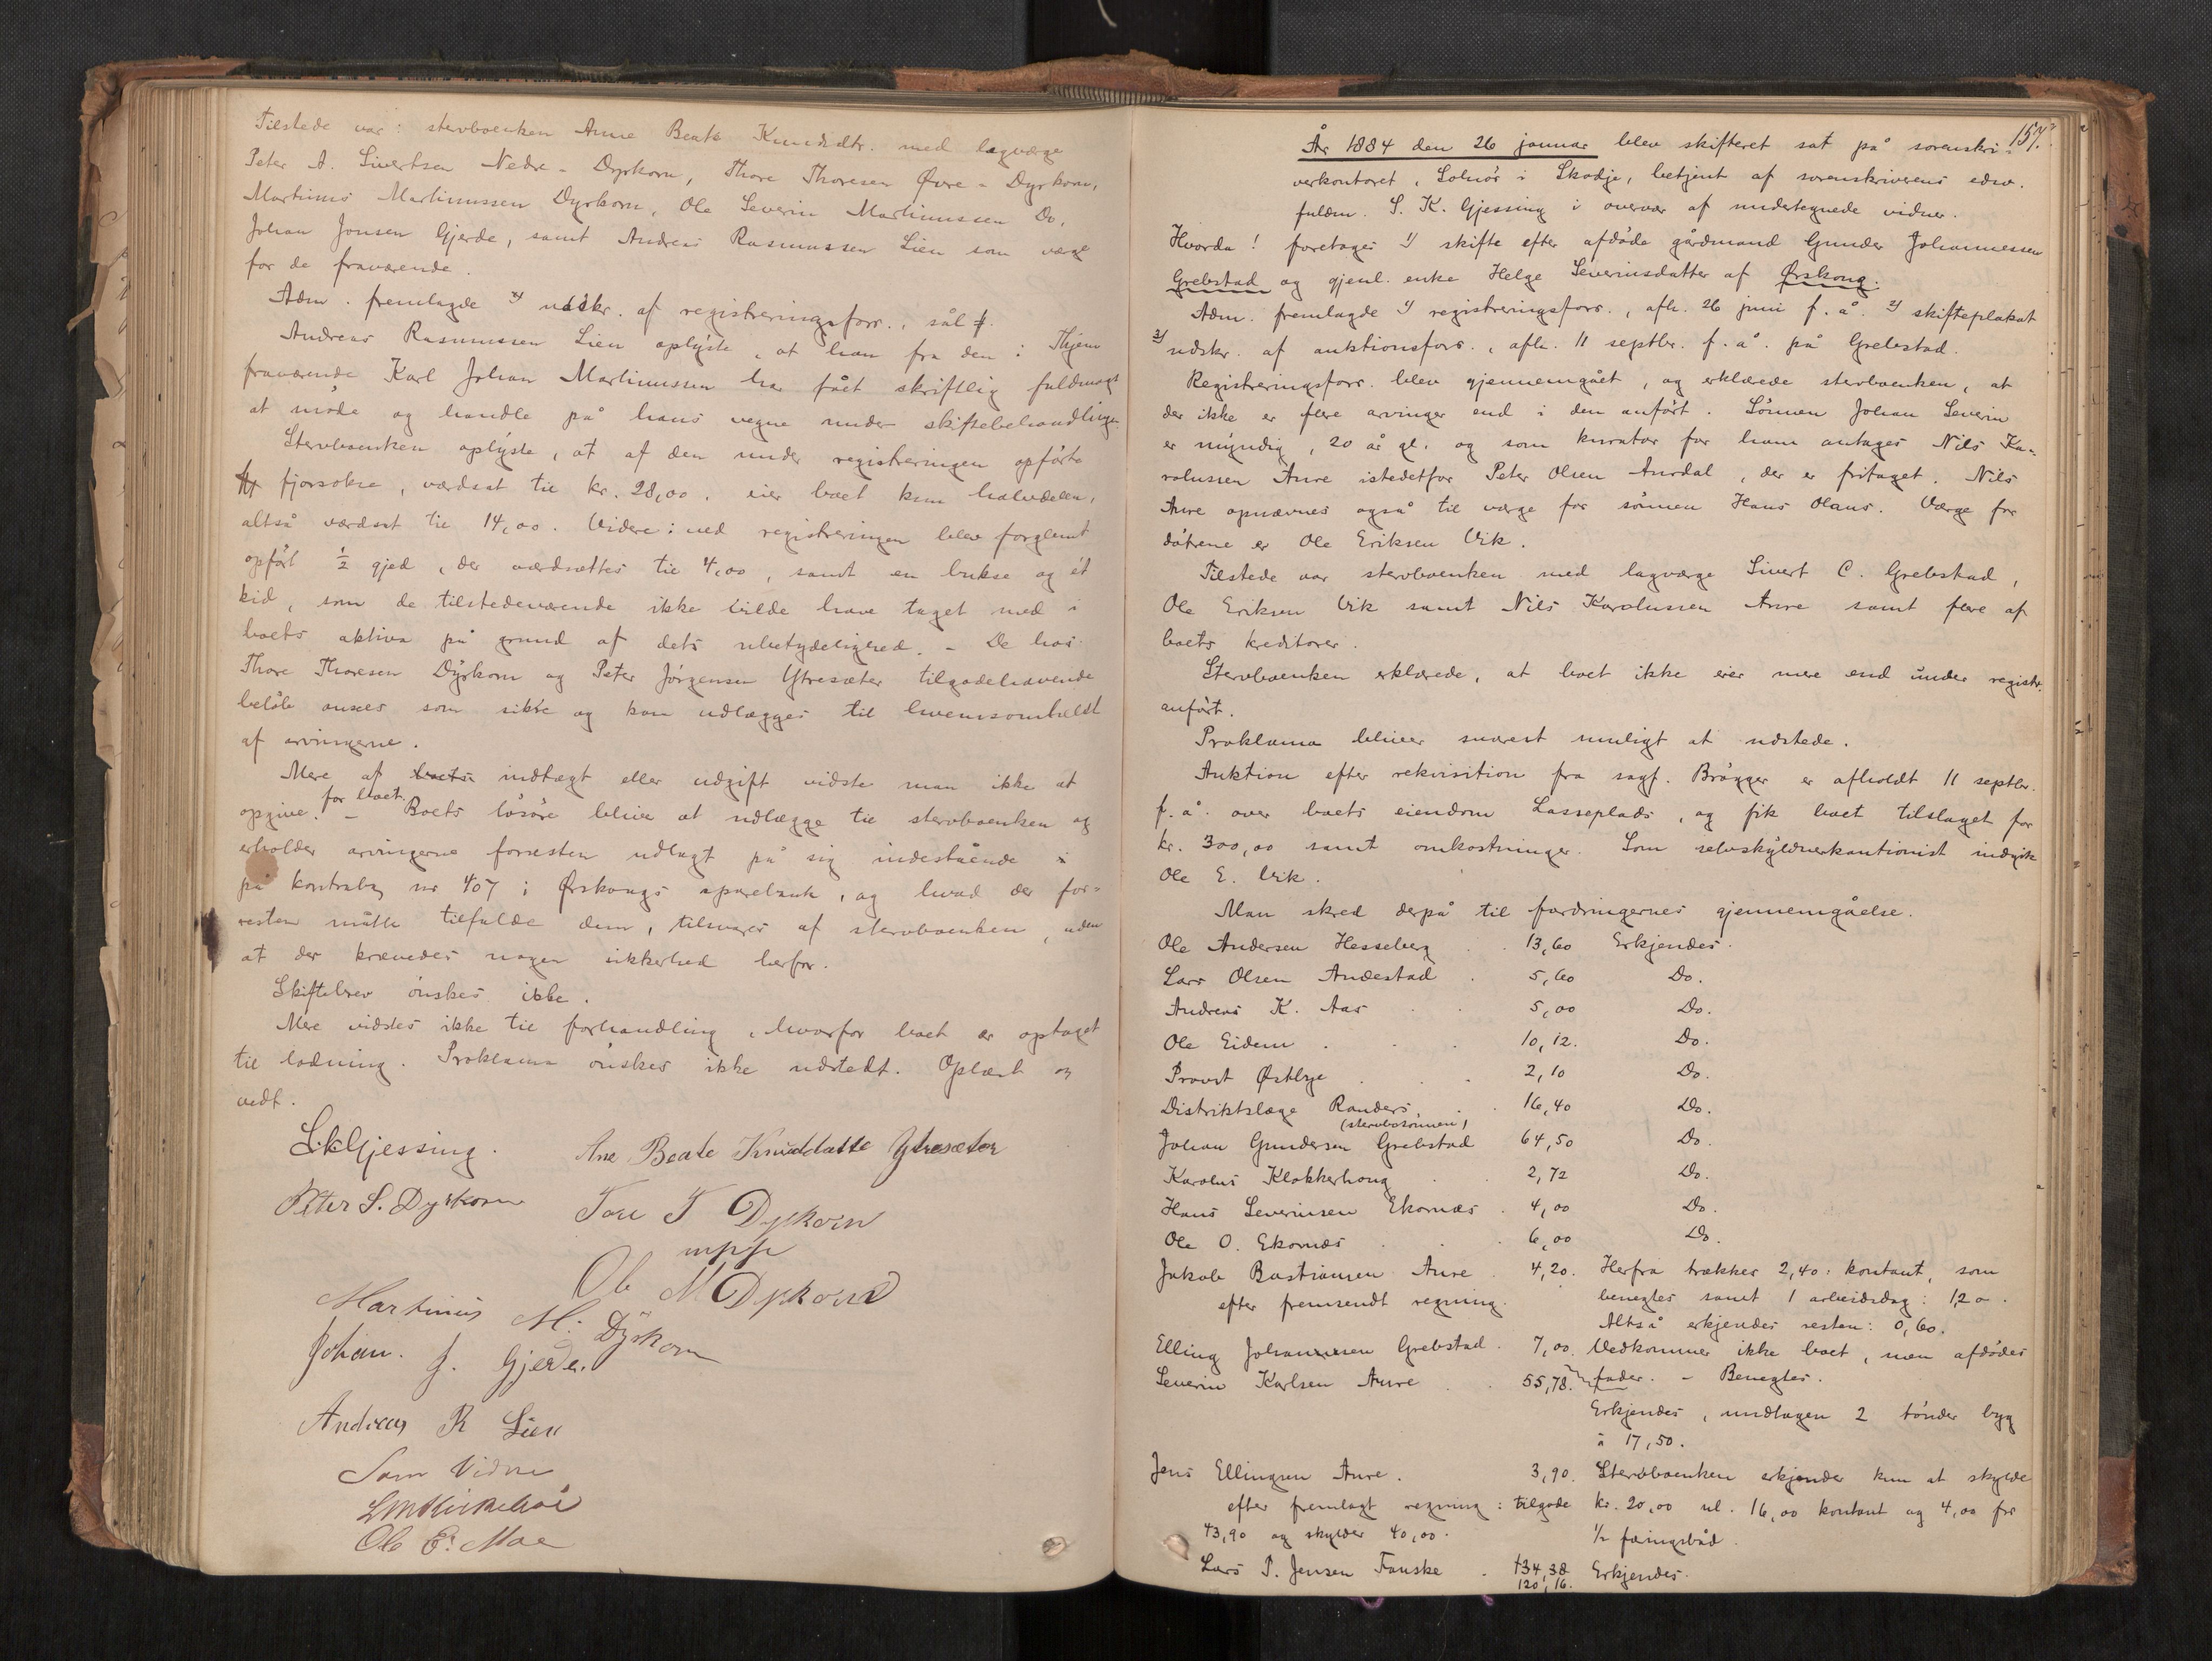 Tilstede var: stervboenken Anne Beate Knudsdtr. med lagværge
Peter A. Sivertsen Nedre-Dyrkorn, Thore Thoresen Øvre-Dyrkorn,
Martinus Martinussen Dyrkorn, Ole Severin Martinussen Do,
Johan Jonsen Gjerde, samt Andreas Rasmussen Lien som værge
for de fraværende.
Adm. fremlagde udskr. af registreringsforr., sål
Andreas Rasmussen Lien oplyste, at han fra den i Thjem
fraværende Karl Johan Martinussen har fåt skriftlig fuldmagt
at møde og handle på hans vegne under skiftebehandlingen
Stervboenken oplyste, at af den under registreringen opførte
fjorsokse, værdsat til kr. 28,00. eier boet kun halvdelen,
altså værdsat til 14,00. Videre: ved registreringen blev forglemt
opført ½ gjed, der værdsættes til 4,00, samt en bukse og ét
kid, som de tilstedeværende ikke vilde have taget med i
boets aktiva på grund af dets ubetydelighed. - De hos
Thore Thoresen Dyrkorn og Peter Jørgensen Ytresæter tilgodehavende
beløb anses som sikre og kan udlægges til hvemsomhelst
af arvingerne.
Mere af boets indtægt eller udgift vidste man ikke at
opgive for boet. - Boets løsøre bliver at udlægge til stervboenken og
erholder arvingerne forresten udlagt på sig indestående i
på kontrabog nr 407 i Ørskougs sparebank, og hvad der for=
resten måtte tilfalde dem, tilsvares af stervboenken, uden
at der krævedes nogen sikkerhed herfor.
Skiftebrev ønskes ikke.
Mere vidstes ikke til forhandling, hvorfor boet er optaget
til lodning. Proklama ønskes ikke udstedt. Oplæst og
vedt.
S.K.Gjessing.
Ane Beate Knuddatte Ytresæter
Peter S. Dyrkorn
Tore T Dyrkorn
mpp
Ole M Dyrkorn
Martinus M: Dyrkorn
Johan. J. Gjerde.
Andreas R Lien
Som Vidne
Ole E. Moe
157.
År 1884 den 26 januar blev skifteret sat på sorenskri-
verkontoret, Solnør i Skodje, betjent af sorenskriverens edsv.
fuldm. S. K. Gjessing i overvær af undertegnede vidner.
Hvorda! foretages 1/ skifte efter afdøde gårdmand Gunder Johannessen
Grebstad og gjenl. enke Helge Severinsdatter af Ørskoug.
Adm. fremlagde 1/ registreringsforr., afh. 26 juni f. å. 2/ skifteplakat
3/ udskr. af auktionsforr., afh. 11 septbr. f. å. på Grebstad.
Registreringsforr. blev gjennemgået, og erklærede stervboenken, at
der ikke er flere arvinger end i den anført. Sønnen Johan Severin
er myndig, 20 år gl. og som kurator for ham antages Nils Ka=
rolussen Aure istedetfor Peter Olsen Aurdal, der er fritaget. Nils
Aure opnævnes også til værge for sønnen Hans Olaus. Værge for
døtrene er Ole Eriksen Vik.
Tilstede var stervboenken med lagværge Sivert C. Grebstad,
Ole Eriksen Vik samt Nils Karolussen Aure samt flere af
boets kreditorer.
Stervboenken erklærede, at boet ikke eier mere end under registr.
anført.
Proklama bliver snarest muligt at udstede.
Auktion efter rekvisition fra sagf. Brøgger er afholdt 11 septbr.
f. å. over boets eiendom Lasseplads, og fik boet tilslaget for
kr. 300,00 samt omkostninger. Som selvskyldnerkautionist indgik
Ole E. Vik.
Man skred derpå til fordringernes gjennemgåelse.
Ole Andersen Hesseberg . . 13,60 Erkjendes.
Lars Olsen Andestad . 5,60 Do.
Andreas K. Aas . . 5,00 Do.
Ole Eidem . . . 10,12. Do.
Provst Østbye . . 2,10 Do.
Distriktslæge Randers. . . 16,40 Do.
(stervbosønnen)
Johan Gundersen Grebstad 64,50 Do.
Karolus Klokkerhoug . 2,72 Do.
Hans Severinsen Ekornæs . 4,00 Do.
Ole O. Ekornæs . . 6,00 Do.
Jakob Bastiansen Aure . 4,20. Herfra trækkes 2,40: kontant, som
efter fremsendt regning. benegtes samt 1 arbeidsdag: 1,20.
Altså erkjendes resten: 0,60.
Elling Johannesen Grebstad. 7,00. Vedkommer ikke boet, men afdødes
fader. - Benegtes.
Severin Karlsen Aure . . 55,78.
Erkjendes, undtagen 2 tønder byg
à 17,50.
Jens Ellingsen Aure. 3,90. Stervboenken erkjender kun at skylde
efter fremlagt regning: tilgode kr. 20,00 nl. 16,00 kontant og 4,00 for
43,90 og skylder 40,00. ½ færingsbåd.
Lars P. Jensen Fauske . 134,38 Erkjendes.
120,16.